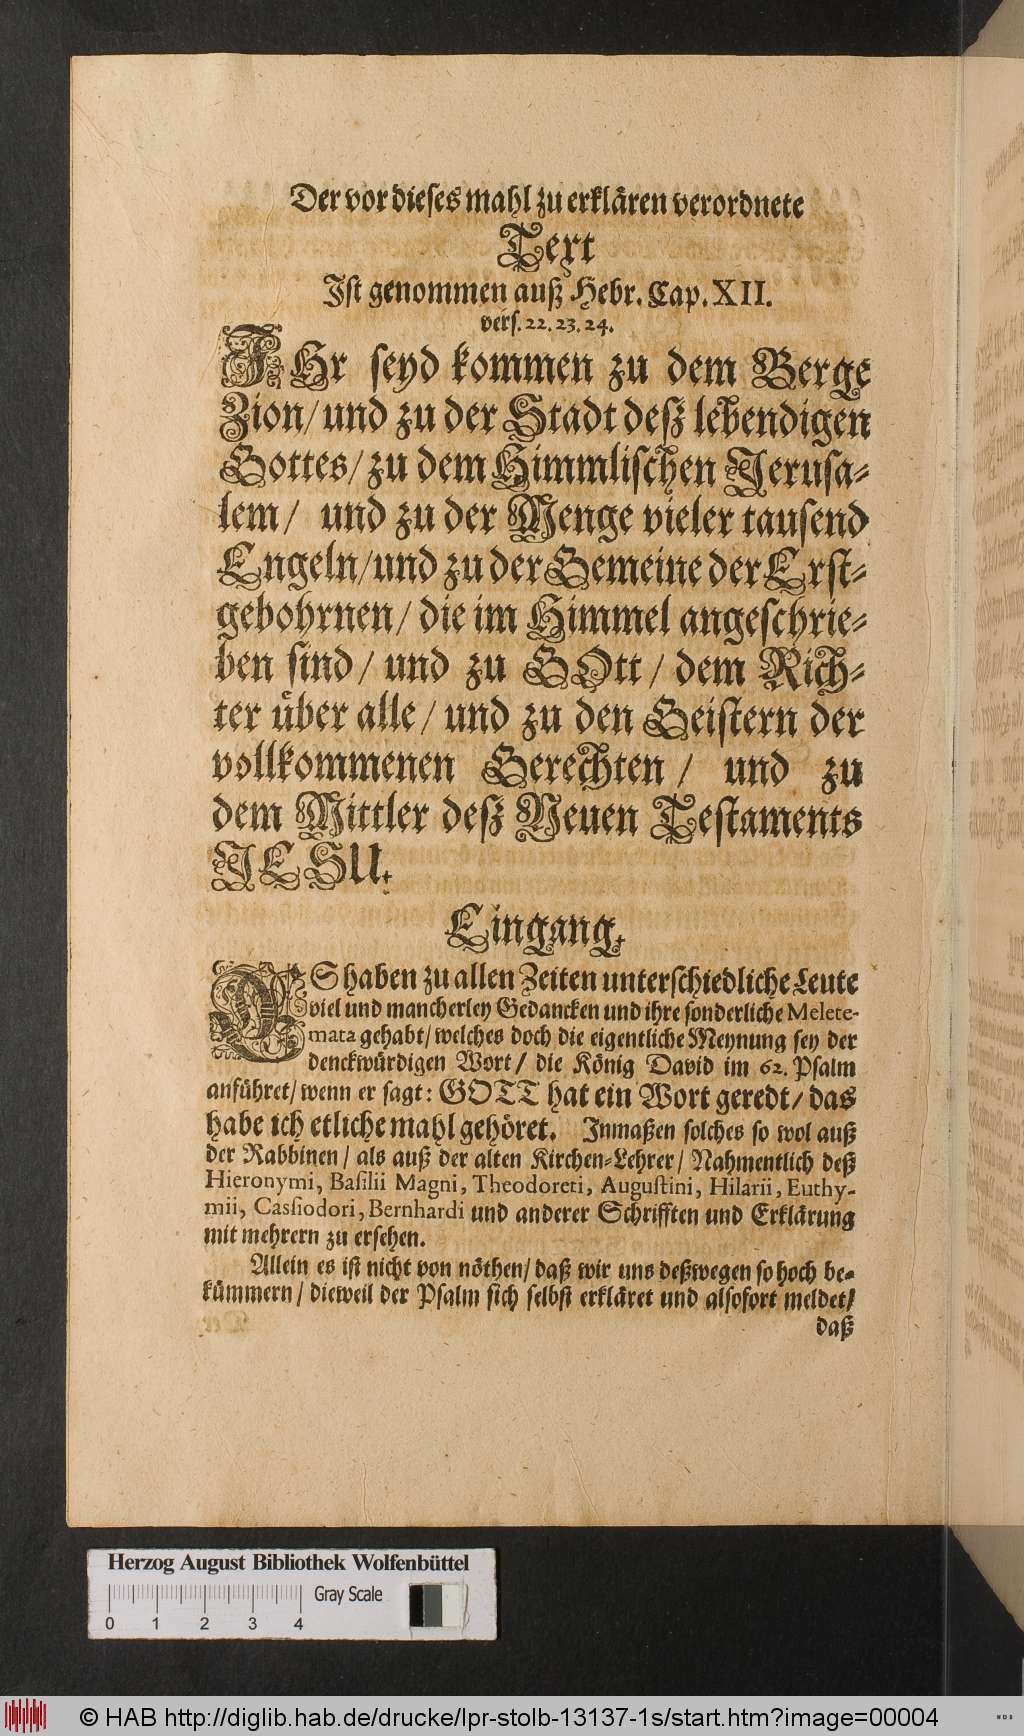 Der vor dieses mahl zu erklären verordnete
Text
Ist genommen auß Hebr. Cap. XII.
vers. 22. 23. 24.
IHr seyd kommen zu dem Berge
Zion/ und zu der Stadt deß lebendigen
Gottes/ zu dem Himmlischen Jerusa-
lem/ und zu der Menge vieler tausend
Engeln/ und zu der Gemeine der Erst-
gebohrnen/ die im Himmel angeschrie-
ben sind/ und zu GOtt/ dem Rich-
ter über alle/ und zu den Geistern der
vollkommenen Gerechten/ und zu
dem Mittler deß Neuen Testaments
JESU.
Eingang.
ES haben zu allen Zeiten unterschiedliche Leute
viel und mancherley Gedancken und ihre sonderliche Melete-
mata gehabt/ welches doch die eigentliche Meynung sey der
denckwürdigen Wort/ die König David im 62. Psalm
anführet/ wenn er sagt: GOTT hat ein Wort geredt/ das
habe ich etliche mahl gehöret. Inmaßen solches so wol auß
der Rabbinen/ als auß der alten Kirchen-Lehrer/ Nahmentlich deß
Hieronymi, Basilii Magni, Theodoreti, Augustini, Hilarii, Euthy-
mii, Cassiodori, Bernhardi und anderer Schrifften und Erklärung
mit mehrern zu ersehen.
Allein es ist nicht von nöthen/ daß wir uns deßwegen so hoch be-
kümmern/ dieweil der Psalm sich selbst erkläret und alsofort meldet/
daß
Herzog August Bibliothek Wolfenbüttel
Gray Scale
0 1 2 3 4
© HAB http://diglib.hab.de/drucke/lpr-stolb-13137-1s/start.htm?image=00004